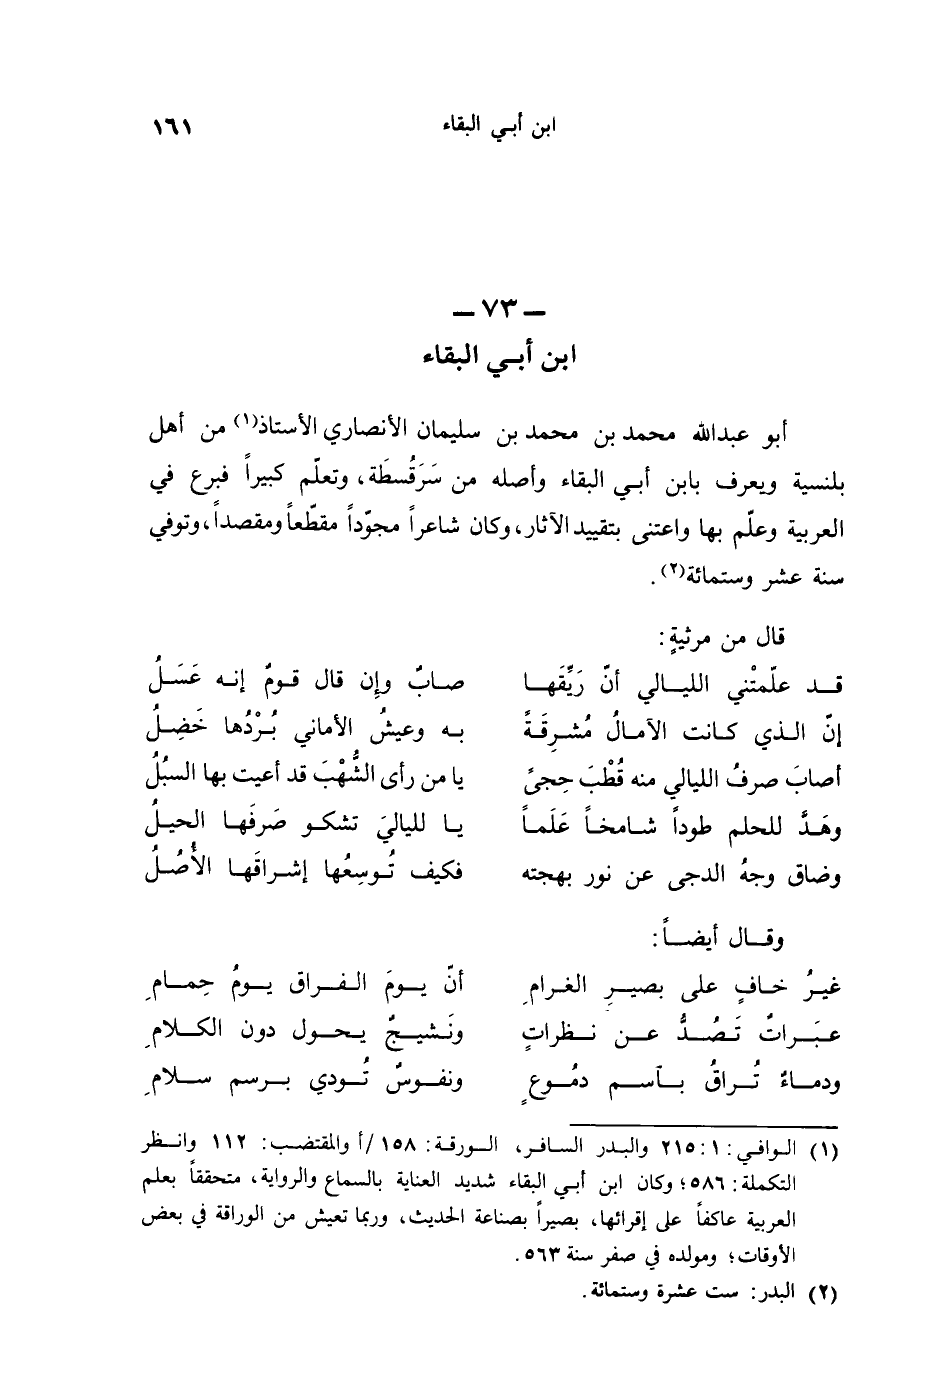 ابن أبي البقاء ١٦١
ـ ٧٣ ـ
ابن أبي البقاء
أبو عبدالله محمد بن محمد بن سليمان الأنصاري الأستاذ(١) من أهل
بلنسية ويعرف بابن أبي البقاء وأصله من سَرَقُسطَة، وتعلّم كبيراً فبرع في
العربية وعلّم بها واعتنى بتقييد الآثار، وكان شاعراً مجوّداً مقطّعاً ومقصداً، وتوفي
سنة عشر وستمائة(٢).
قال من مرثيةٍ:
قـد علّمتْني الليـالي أنّ رَيِّقَهـا صـابٌ وإن قال قـومٌ إنـه عَسَـلُ
إنّ الـذي كـانت الآمـالُ مُشـرِقَـةً بـه وعيشُ الأماني بُـرْدُها خَضِـلُ
أصابَ صرفُ الليالي منه قُطْبَ حِجىً يا من رأى الشُّهْبَ قد أعيت بها السبُلُ
وهَـدَّ للحلم طوداً شـامخـاً عَلَمـاً يـا لليـاليَ تشكـو صَرفَهـا الحيـلُ
وضاق وجهُ الدجى عن نور بهجته فكيف تُـوسِعُها إشـراقَهـا الأُصُـلُ
وقـال أيضـاً:
غيـرُ خـافٍ على بصيـرِ الغـرامِ أنّ يـومَ الـفـراق يـومُ حِمـامِ
عبَـراتٌ تَـصُـدُّ عـن نـظراتٍ ونَـشيـجٌ يـحـول دون الكـلامِ
ودمـاءٌ تُـراقُ بـآسـم دمُـوعٍ ونفـوسٌ تُـودي بـرسم سـلامِ
(١) الـوافي: ١: ٢١٥ والبـدر السـافر، الـورقـة: ١٥٨/أ والمقتضـب: ١١٢ وانـظر
التكملة: ٥٨٦؛ وكان ابن أبي البقاء شديد العناية بالسماع والرواية، متحققاً بعلم
العربية عاكفاً على إقرائها، بصيراً بصناعة الحديث، وربما تعيش من الوراقة في بعض
الأوقات؛ ومولده في صفر سنة ٥٦٣.
(٢) البدر: ست عشرة وستمائة.